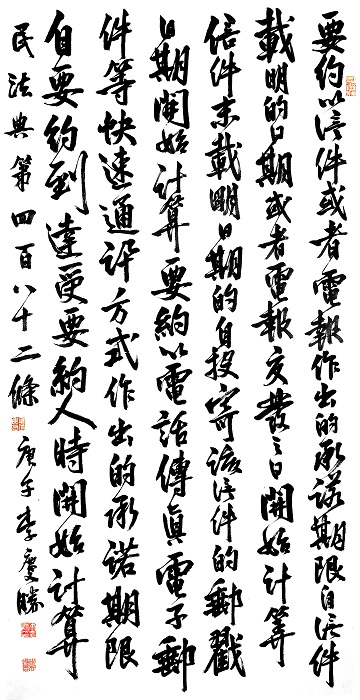 要約以信件或者電報作出的承諾期限自信件
載明的日期或者電報交發之日開始計算
信件未載明日期的自投寄該信件的郵戳
日期開始計算要約以電話傳真電子郵
件等快速通訊方式作出的承諾期限
自要約到達受要約人時開始計算
民法典第四百八十二條 庚子李慶勝